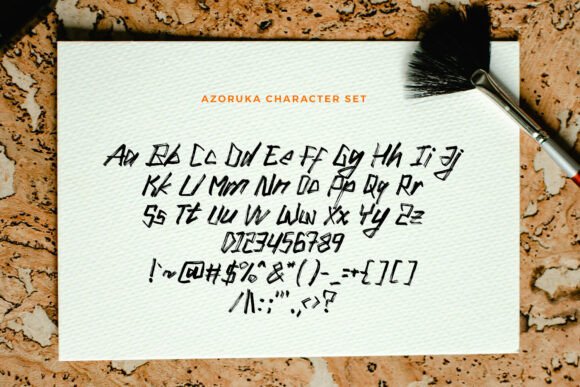 AZORUKA CHARACTER SET
Aa Bb Cc Dd Ee Ff Gg Hh Ii Jj
Kk Ll Mm Nn Oo Pp Qq Rr
Ss Tt Uu Vv Ww Xx Yy Zz
0123456789
!`~@#$%^&*()-_=+{}[]
/\|:;"'.,<>?